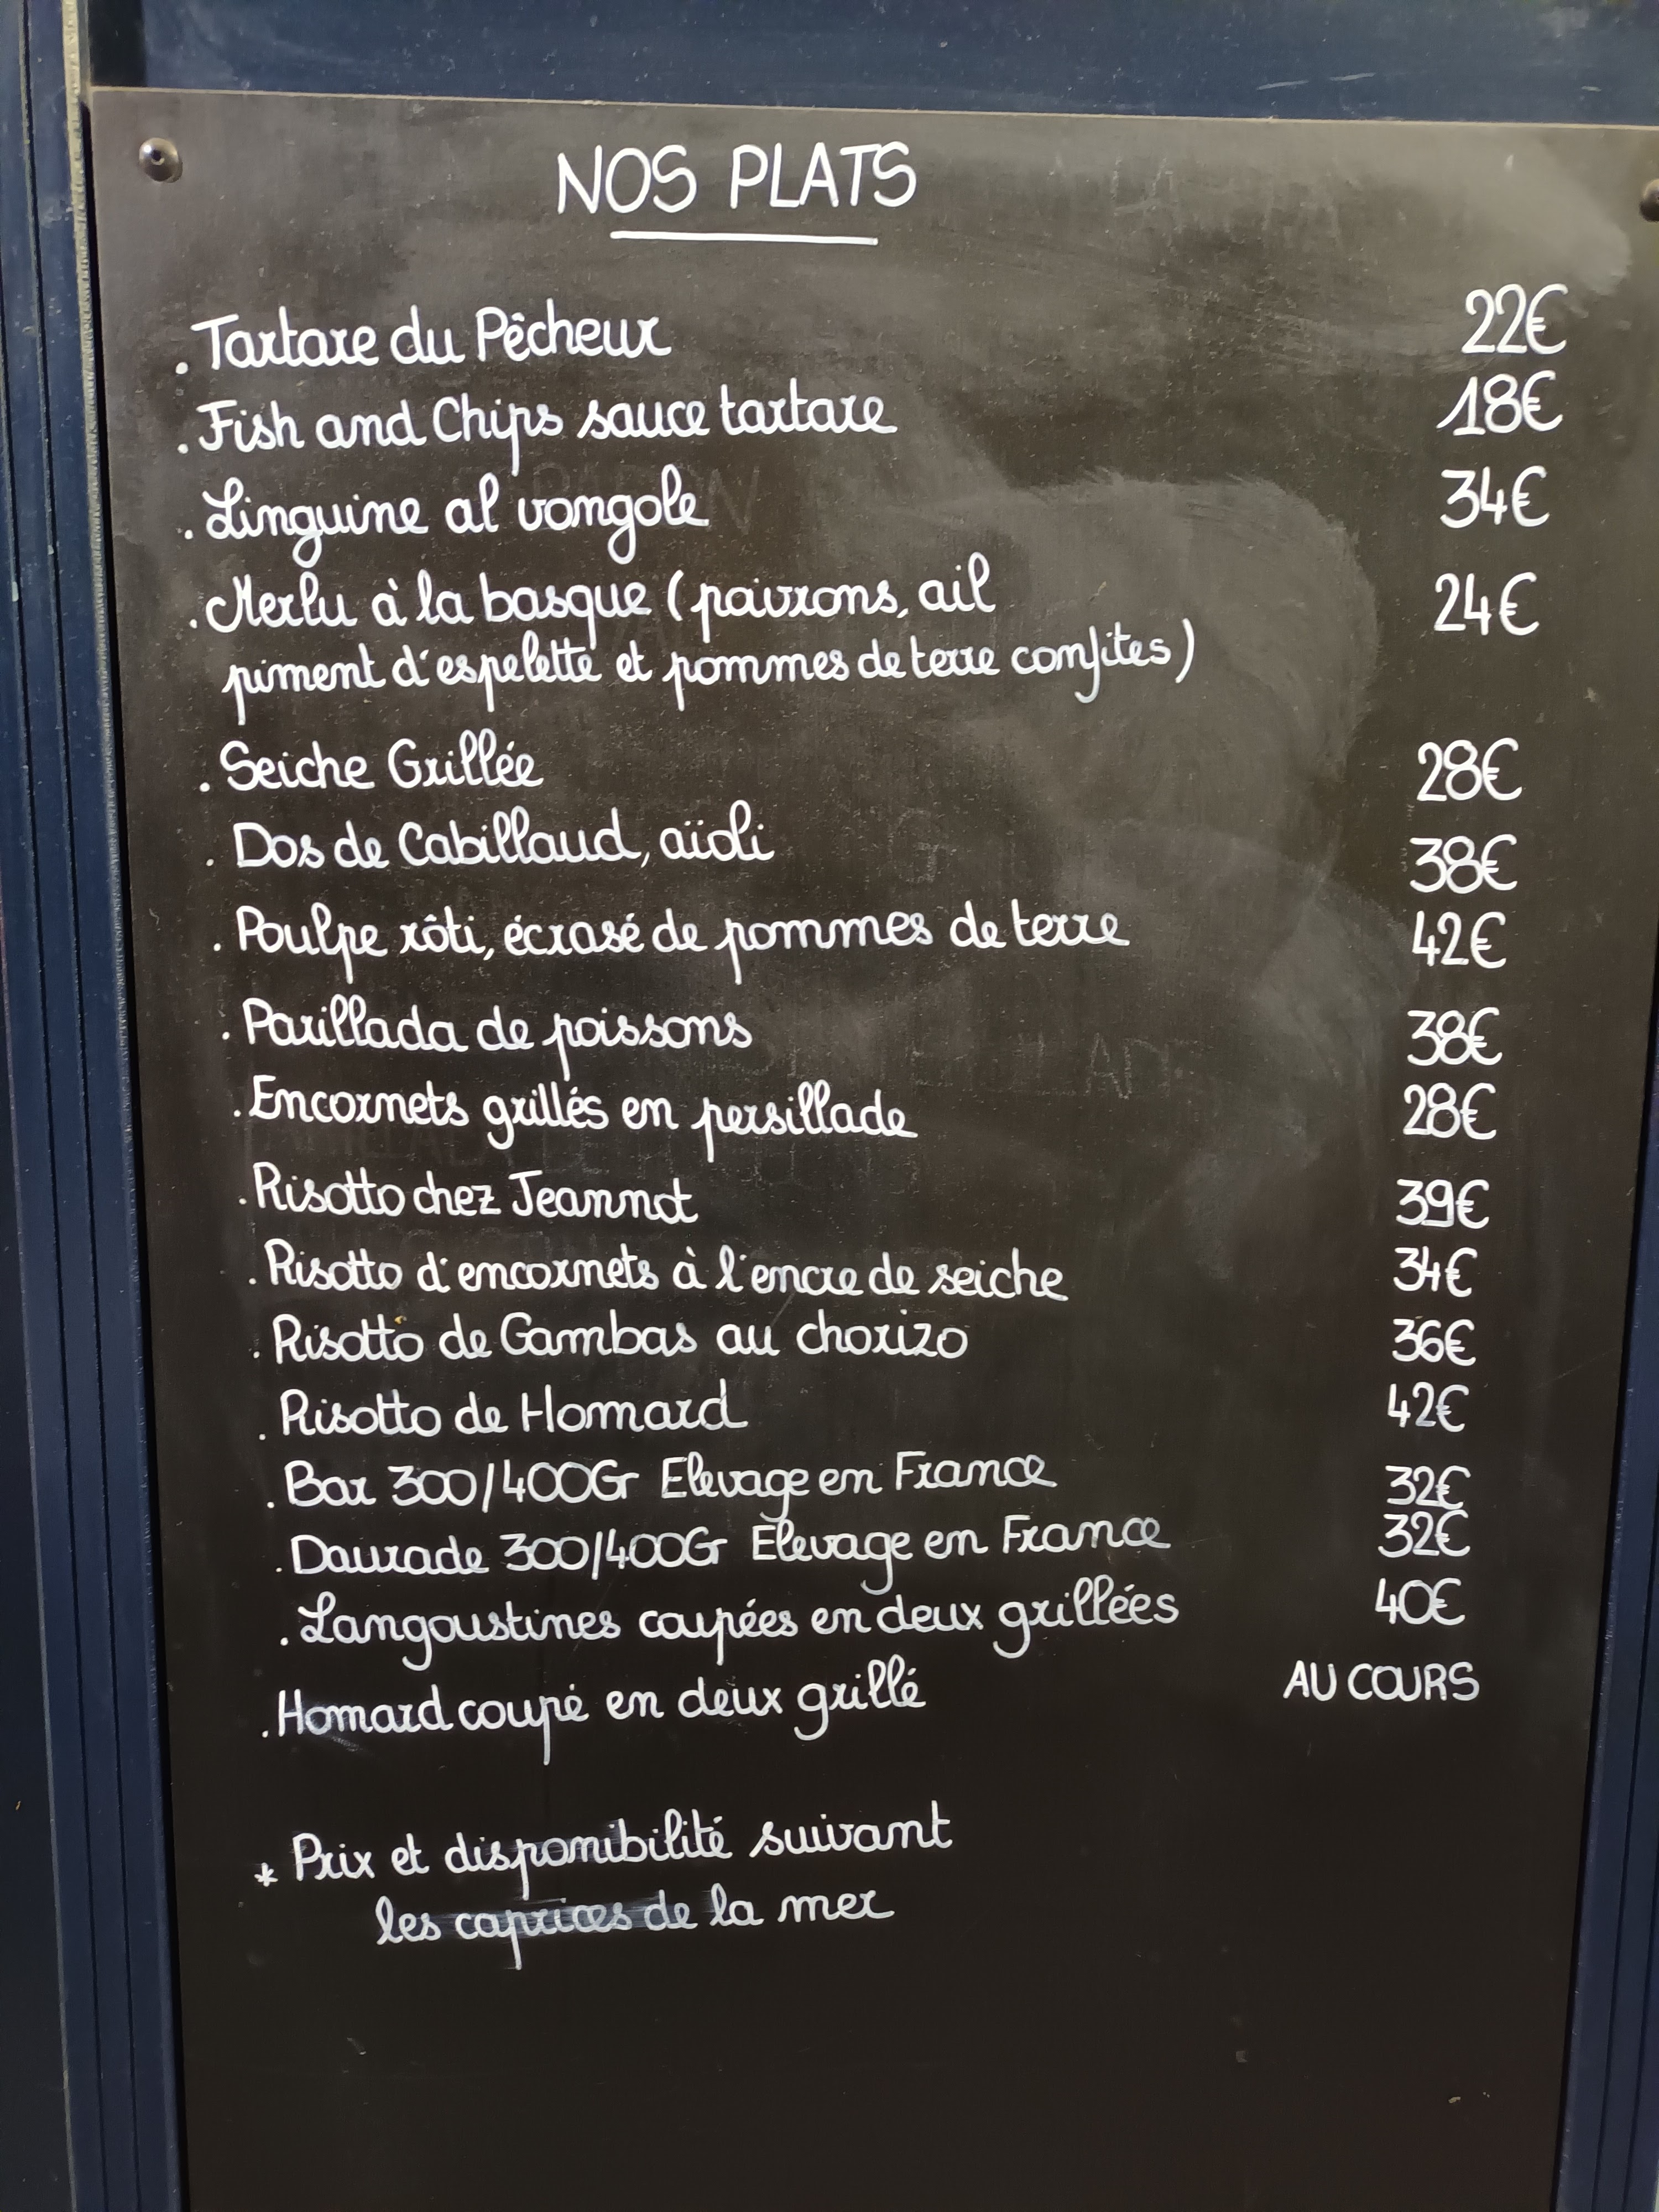 NOS PLATS
. Tartare du Pêcheur 22€
. Fish and Chips sauce tartare 18€
. Linguine al vongole 34€
. Merlu à la basque (poivrons, ail 24€
piment d'espelette et pommes de terre confites)
. Seiche Grillée 28€
. Dos de Cabillaud, aïoli 38€
. Poulpe rôti, écrasé de pommes de terre 42€
. Parillada de poissons 38€
. Encornets grillés en persillade 28€
. Risotto chez Jeannot 39€
. Risotto d'encornets à l'encre de seiche 34€
. Risotto de Gambas au chorizo 36€
. Risotto de Homard 42€
. Bar 300/400Gr Elevage en France 32€
. Daurade 300/400Gr Elevage en France 32€
. Langoustines coupées en deux grillées 40€
. Homard coupé en deux grillé AU COURS
* Prix et disponibilité suivant
les caprices de la mer